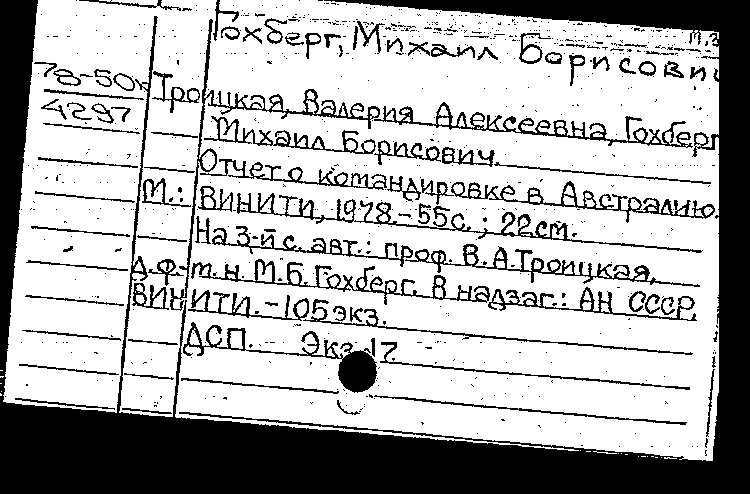 Гохберг, Михаил Борисови
78-50
4297
Троицкая, Валерия Алексеевна, Гохберг
Михаил Борисович.
Отчет о командировке в Австралию.
М.: ВИНИТИ, 1978.-55с.; 22см.
На 3-й с. авт.: проф. В.А.Троицкая,
д.ф.-м.н. М.Б.Гохберг. В надзаг.: АН СССР,
ВИНИТИ.-105экз.
ДСП. Экз 17